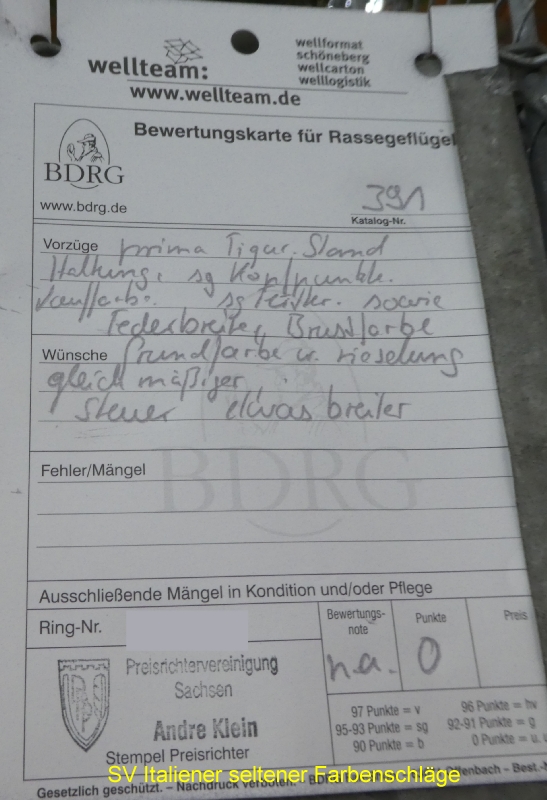 wellteam:
wellformat
schöneberg
wellcarton
welllogistik
www.wellteam.de
Bewertungskarte für Rassegeflügel
BDRG
www.bdrg.de
391
Katalog-Nr.
Vorzüge prima Figur. Stand
Haltung, sg Kopfpunkte.
Lauffarbe. sg Feiter. sowie
Federbreite, Brustfarbe
Wünsche Grundfarbe u. rieselung
gleichmäßiger
Steuer etwas breiter
Fehler/Mängel
BDRG
Ausschließende Mängel in Kondition und/oder Pflege
Ring-Nr.
Bewertungs-
note
Punkte
Preis
n.a. 0
Preisrichtervereinigung
Sachsen
Andre Klein
Stempel Preisrichter
97 Punkte = v
96 Punkte = hv
95-93 Punkte = sg
92-91 Punkte = g
90 Punkte = b
0 Punkte = u.
SV Italiener seltener Farbenschläge
Gesetzlich geschützt. – Nachdruck verboten. – BDR Offenbach – Best.-